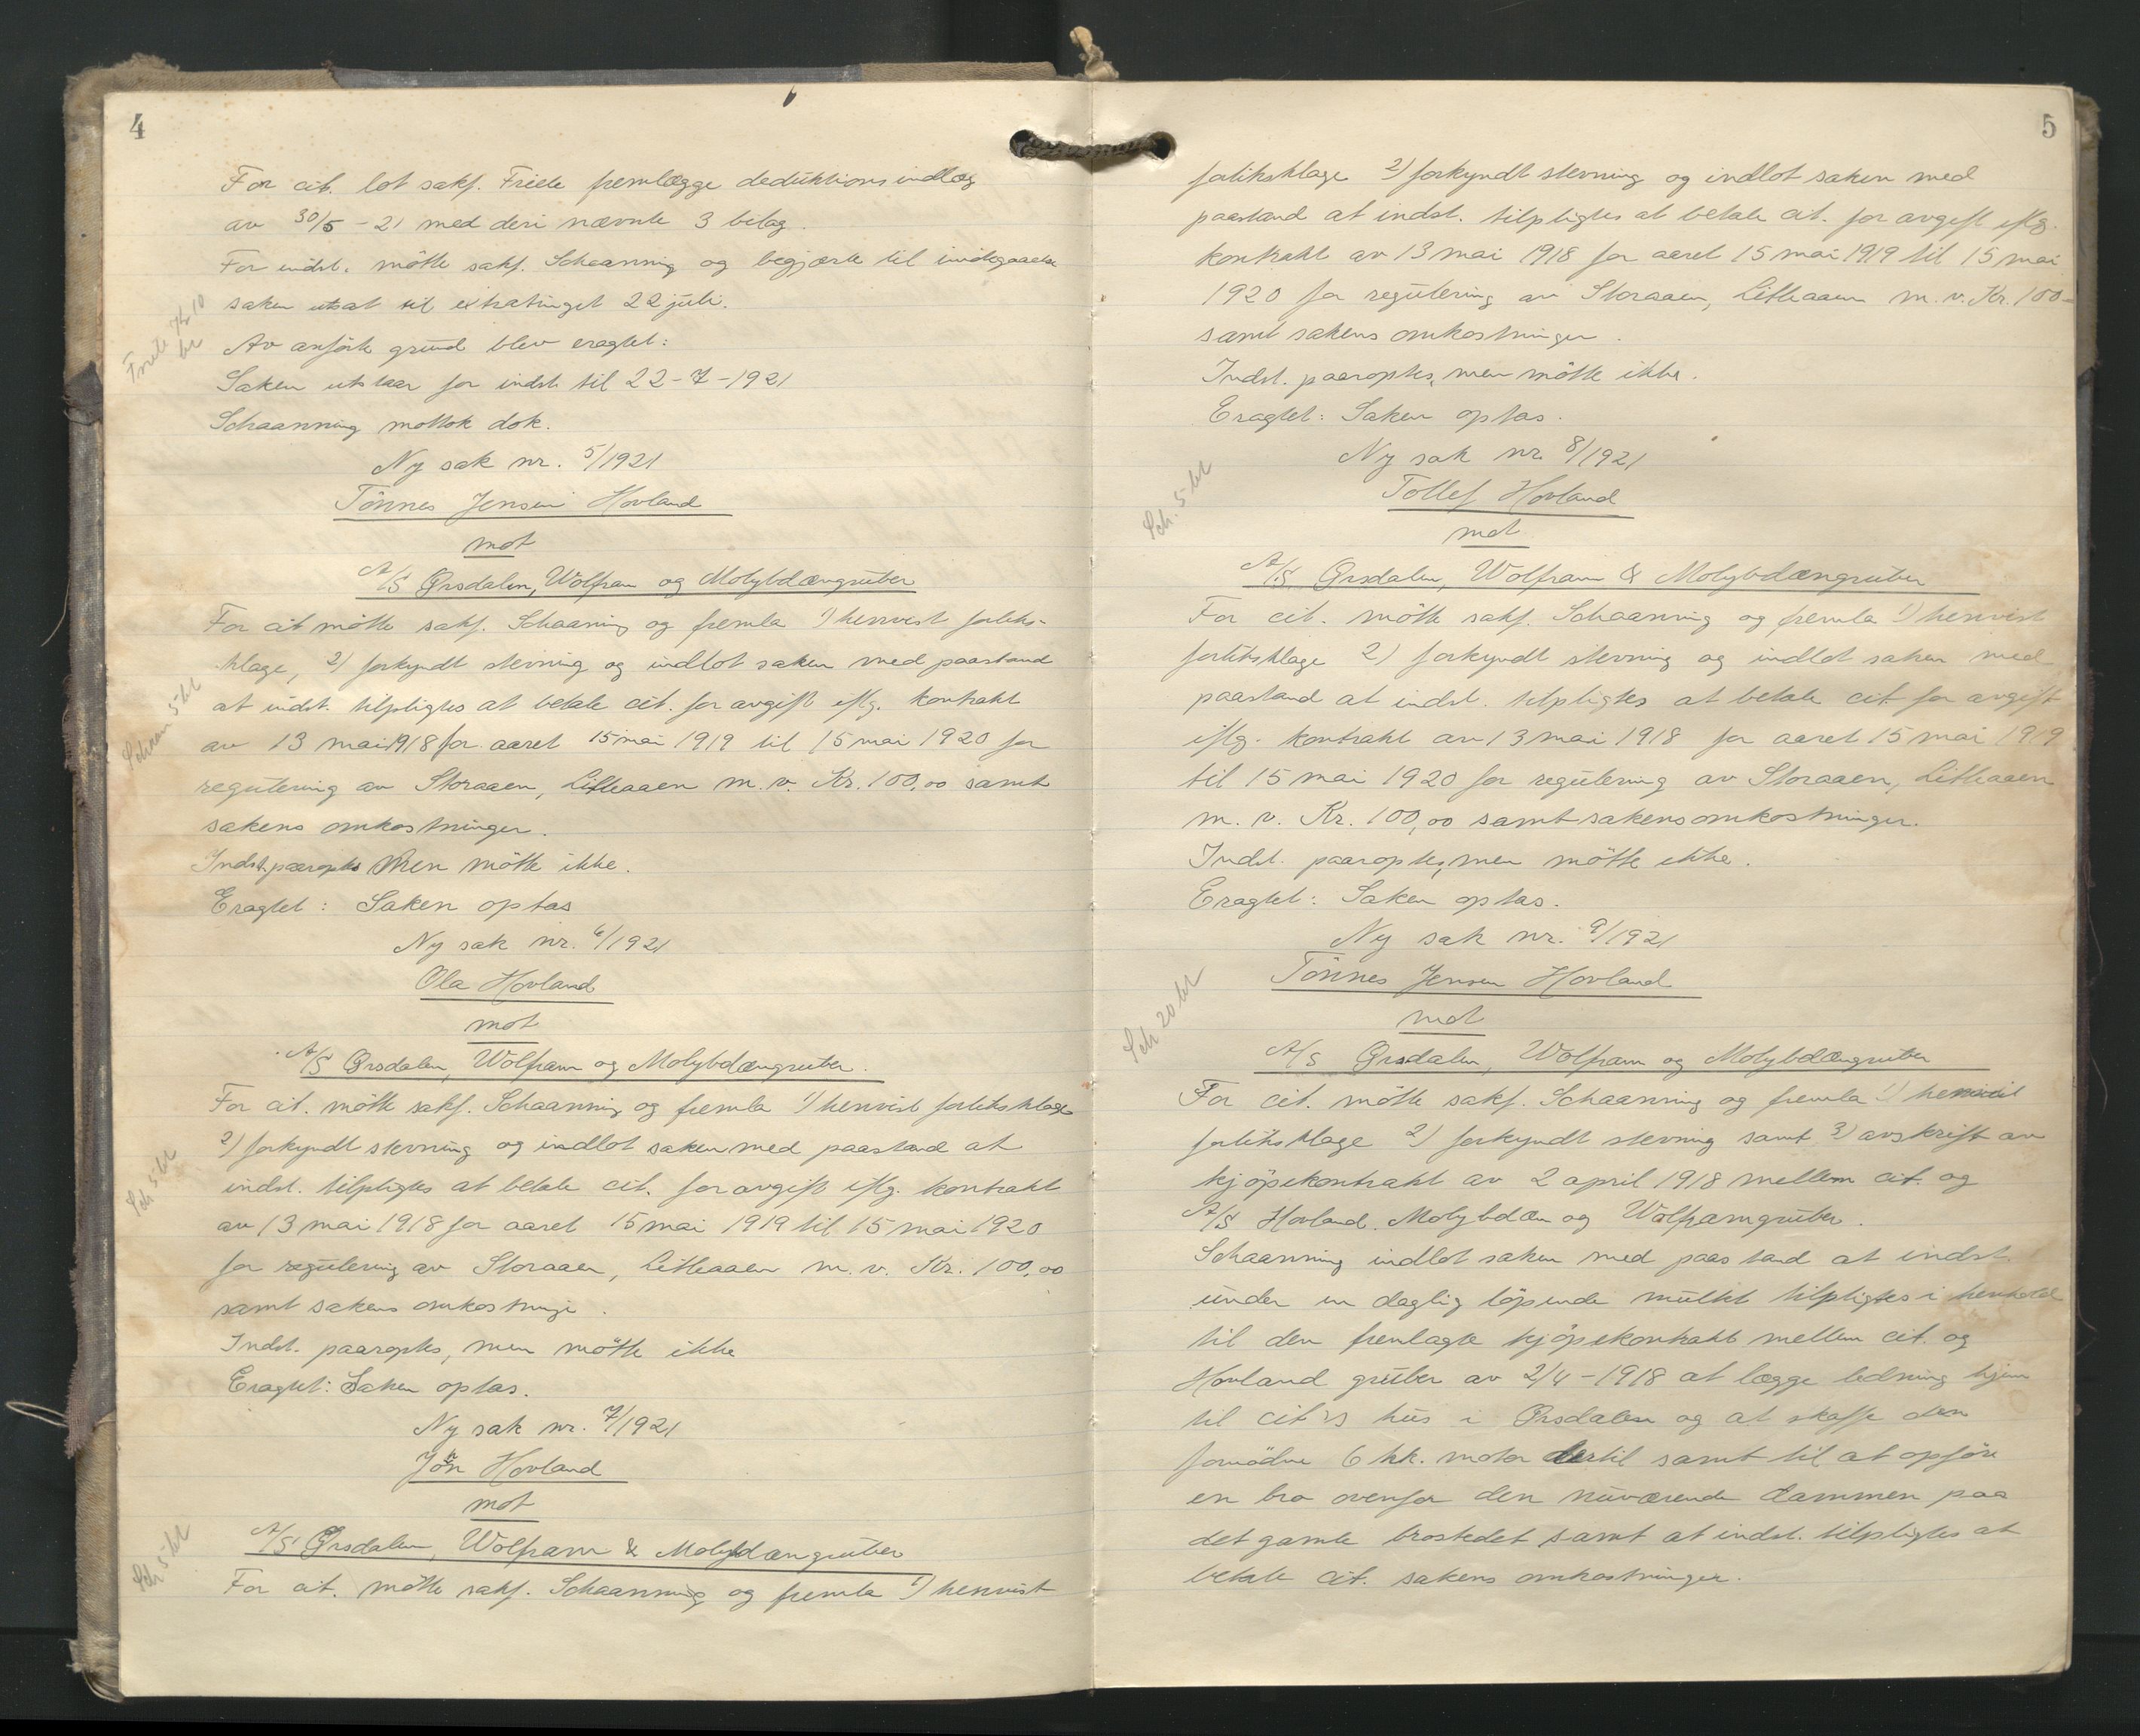 4
For cit. lot sakf. Friele fremlægge deduktionsindlæg
av 30/5 - 21 med deri nævnte 3 bilag.
For indst. mötte sakf. Schaanning og begjærte til imötegaaelse
saken utsat til extratinget 22 juli.
Friele 10
Av anförte grund blev eragtet:
Saken utstaar for indst. til 22-7-1921
Schaanning mottok dok.
Ny sak nr. 5/1921
Tönnes Jensen Hovland
mot
A/S Ørsdalen, Wolfram og Molybdængruber
For cit mötte sakf. Schaaning og fremla 1) henvist forliks-
klage, 2) forkyndt stevning og indlot saken med paastand
at indst. tilpligtes at betale cit. for avgift iflg. kontrakt
av 13 mai 1918 for aaret 15 mai 1919 til 15 mai 1920 for
regulering av Storaaen, Litleaaen m. v. Kr. 100,00 samt
sakens omkostninger.
Indst. paaroptes men mötte ikke.
Eragtet: Saken optas
Ny sak nr. 6/1921
Ola Hovland
mot
A/S Ørsdalen, Wolfram og Molybdængruber.
For cit. mötte sakf. Schaanning og fremla 1) henvist forliksklage
2) forkyndt stevning og indlot saken med paastand at
Sch 5 bl
indst. tilpligtes at betale cit. for avgift iflg. kontrakt
av 13 mai 1918 for aaret 15 mai 1919 til 15 mai 1920
for regulering av Storaaen, Litleaaen m. v. Kr. 100,00
samt sakens omkostninge.
Indst. paaroptes, men mötte ikke
Eragtet: Saken optas.
Ny sak nr. 7/1921
Jon Hovland
mot
A/S Ørsdalen, Wolfram & Molybdængruber
Sch 5 bl
For cit. mötte sakf. Schaanning og fremla 1) henvist
5
forliksklage 2) forkyndt stevning og indlot saken med
paastand at indst. tilpligtes at betale cit. for avgift iflg.
kontrakt av 13 mai 1918 for aaret 15 mai 1919 til 15 mai
1920 for regulering av Storaaen, Litleaaen m. v. Kr. 100-
samt sakens omkostninger.
Indst. paaroptes, men mötte ikke.
Eragtet: Saken optas.
Ny sak nr. 8/1921
Sch. 5 bl
Tollef Hovland
mot
A/S Ørsdalen, Wolfram & Molybdængruber
For cit. mötte sakf. Schaanning og fremla 1) henvist
forliksklage 2) forkyndt stevning og indlot saken med
paastand at indst. tilpligtes at betale cit. for avgift
iflg. kontrakt av 13 mai 1918 for aaret 15 mai 1919
til 15 mai 1920 for regulering av Storaaen, Litleaaen
m. v. Kr. 100,00 samt sakens omkostninger.
Indst. paaroptes, men mötte ikke.
Eragtet: Saken optas.
Ny sak nr. 9/1921
Tönnes Jensen Hovland
Sch 20 bl
mot
A/S Ørsdalen, Wolfram og Molybdængruber
For cit. mötte sakf. Schaanning og fremla 1) henvist
forliksklage 2) forkyndt stevning samt 3) avskrift av
kjöpekontrakt av 2 april 1918 mellem cit. og
A/S Hovland Molybdæn og Wolframgruber.
Schaanning indlot saken med paastand at indst.
under en daglig löpende mulkt tilpligtes i henhold
til den fremlagte kjöpekontrakt mellem cit. og
Hovland gruber av 2/4-1918 at lægge ledning hjem
til cit's hus i Ørsdalen og at skaffe den
fornödne 6 hk. motor dertil samt til at opföre
en bro ovenfor den nuværende dammen paa
det gamle brostedet samt at indst. tilpligtes at
betale cit. sakens omkostninger.